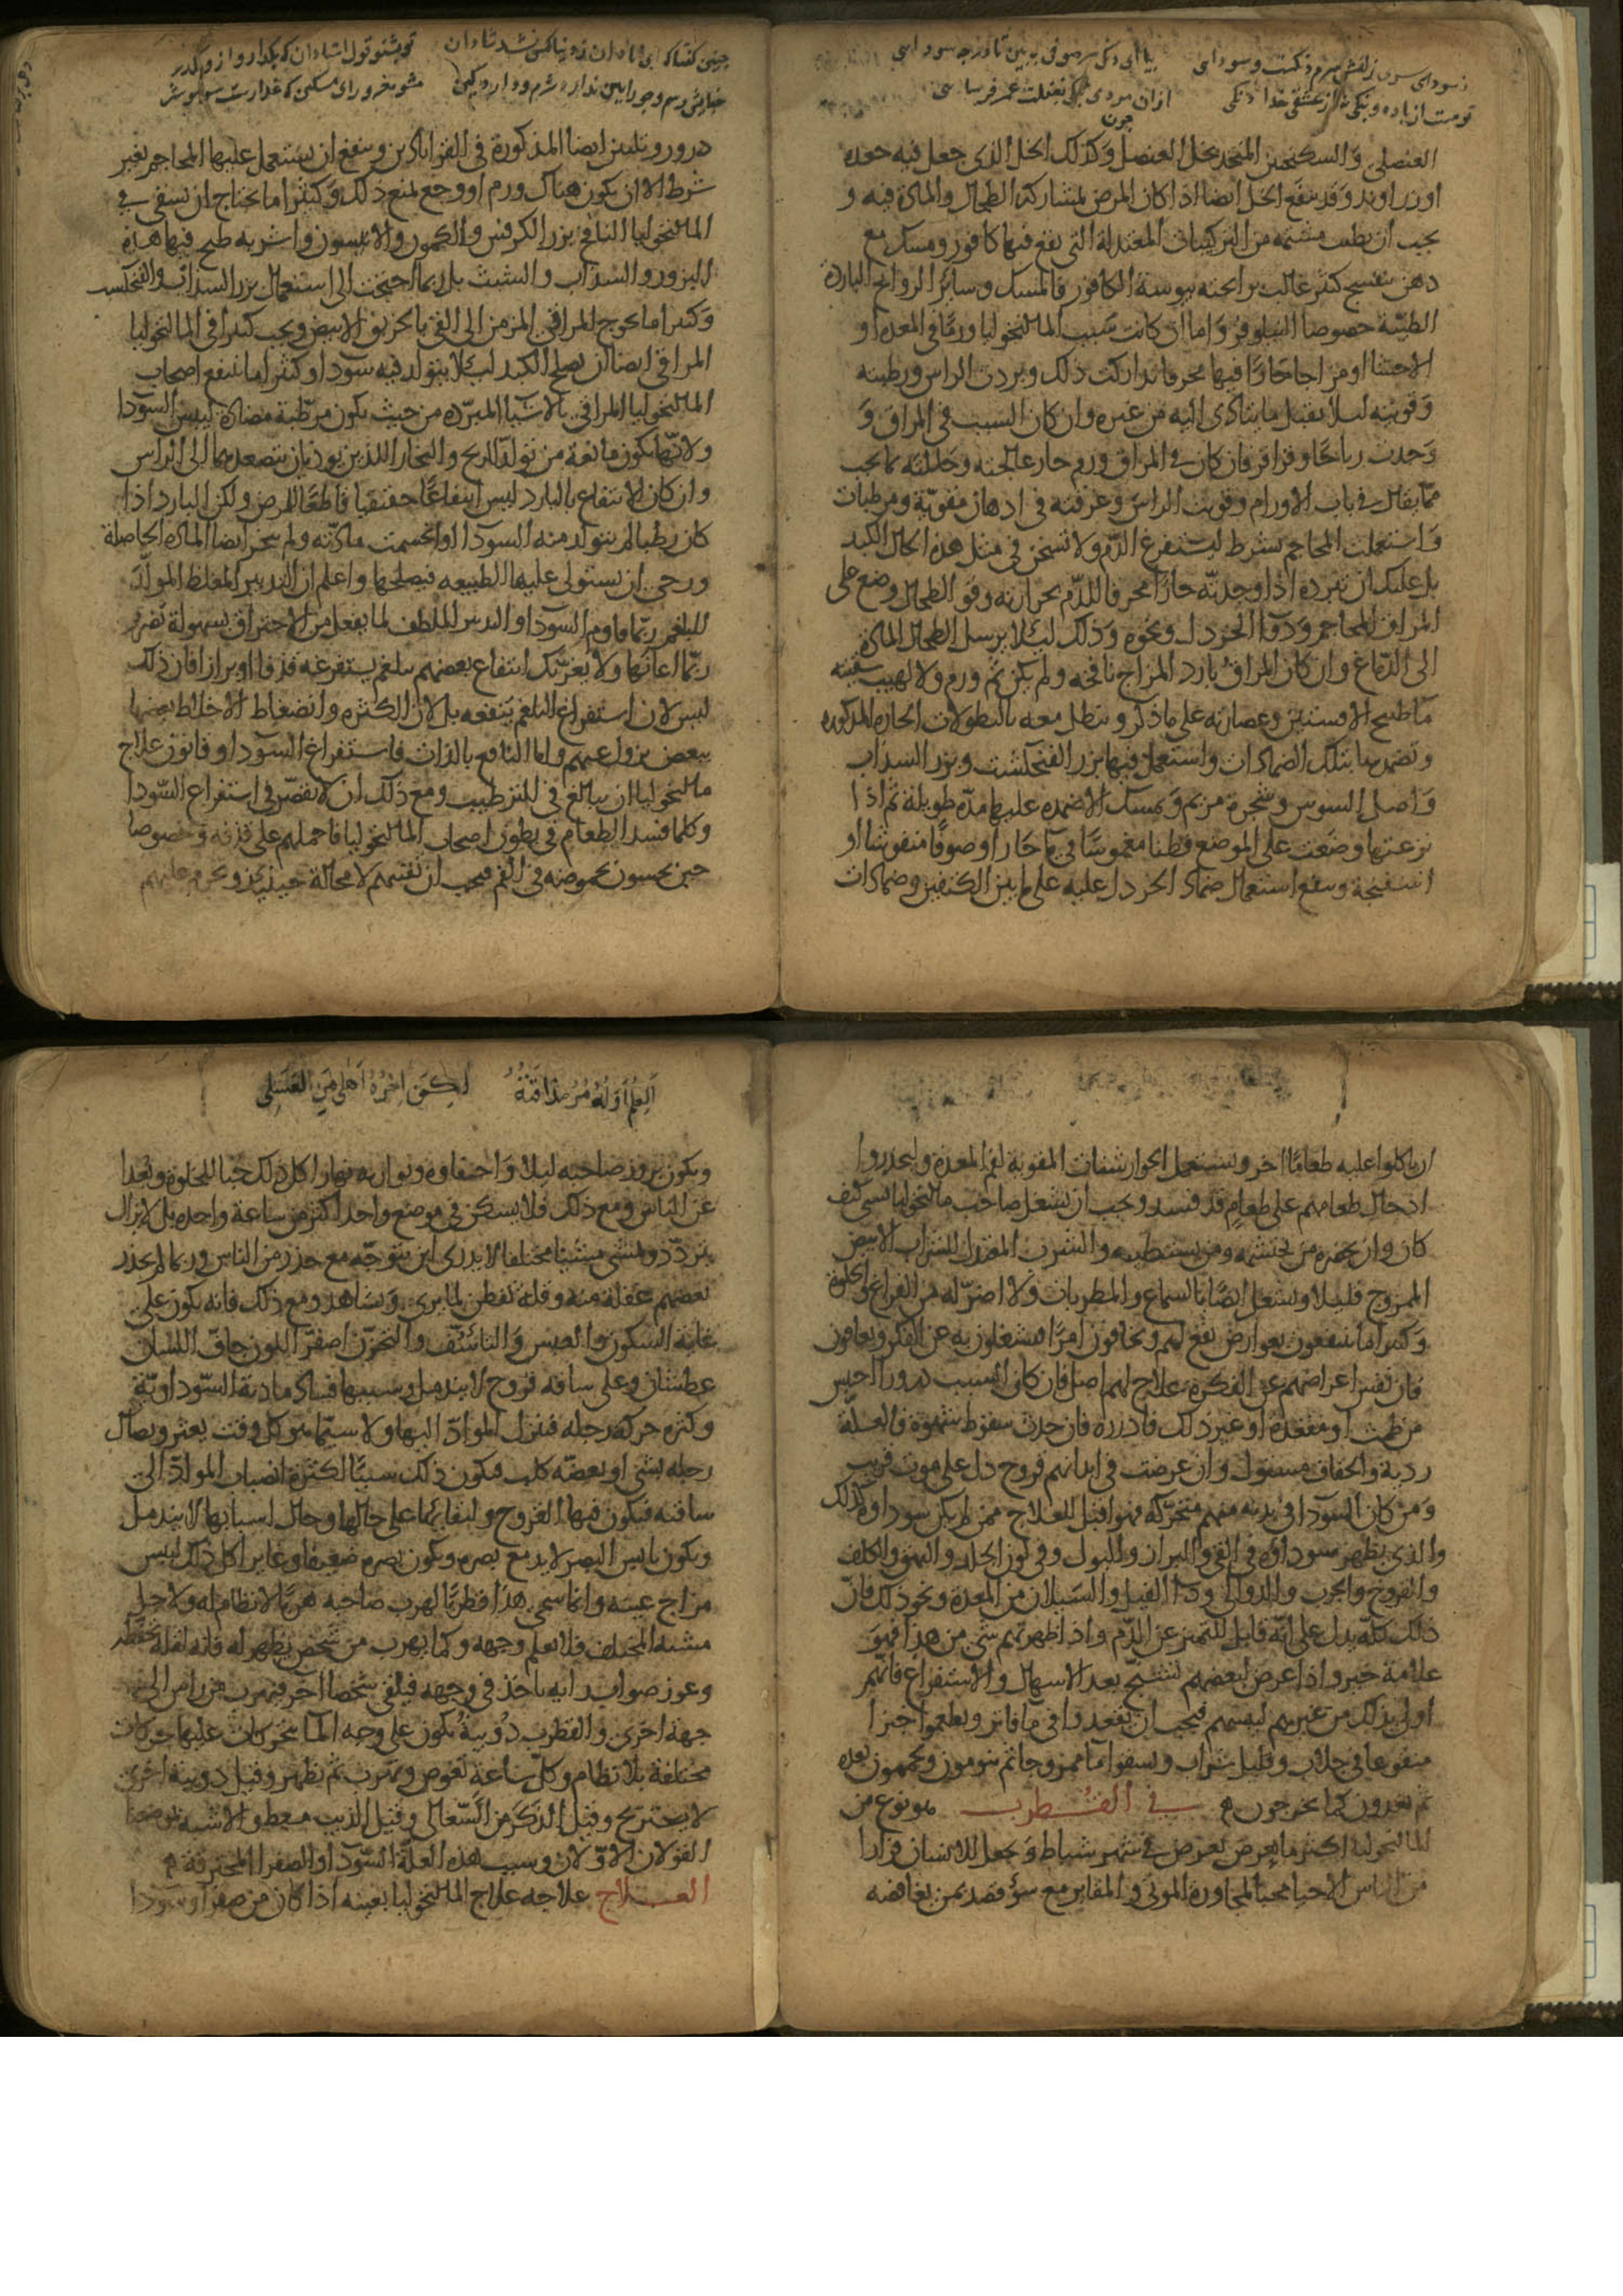 العنصلى والسكنجبين المتخذ بخل العنصل وكذلك الخل الذى جعل فيه جعده
او زراوند وقد ينفع الخل ايضا اذا كان المرض لمشاركة الطحال والمادة فيه و
يجب ان يطيب مشتمه من التركيبات المعتدلة التى يقع فيها كافور ومسك مع
دهن بنفسج كثير غالب برايحته يبوسة الكافور فالمسك وسائر الروائح الباردة
الطيبة خصوصا النيلوفر واما ان كانت سبب المالنخوليا ورما فى المعده او
الاحشا او مزاجا حارا فيها محرقا تداركت ذلك وبردت الراس ورطبته
وقويته ليلا يقبل ما يتادى اليه من غيره وان كان السبب فى المراق و
وجدت رياحا وقراقر فان كان فى المراق ورم حار عالجته وحللته كما يجب
مما يقال فى باب الاورام وقويت الراس وغرقته فى ادهان مقوية ومرطبات
واستعملت المحاجم بشرط ليستفرغ الدم ولا تسخن فى مثل هذه الحال الكبد
بل عليك ان تبرده اذا وجدته حارا محرقا للدم بحرارته وقو الطحال وضع على
المراق المحاجم ودوا الخردل ونحوه وذلك ليلا يرسل الطحال المادة
الى الدماغ وان كان المراق بارد المزاج نافخه ولم يكن ثم ورم ولا لهيب سقيته
ما طبيخ الافسنتين وعصارته على ما ذكر وينطل معده بالنطولات الحارة المذكوره
وتضمدها بتلك الضمادات واستعمل فيها بزر الفنجنكشت وبزر السداب
واصل السوس وشجرة مريم وتمسك الاضمده عليها مدة طويلة ثم اذا
نزعتها وضعت على الموضع قطنا مغموسا فى ما حار او صوفا منفوشا او
اسفنجة وينفع استعمال ضماد الخردل عليه على ما بين الكتفين وضمادات
درور وتليس ايضا المذكورة فى القراباذين وينفع ان يستعمل عليها المحاجم بغير
شرط الا ان يكون هناك ورم او وجع يمنع ذلك وكثيرا ما يحتاج ان تسقى فى
المالنخوليا النافخ بزر الكرفس والكمون والانيسون واشربه طبح فيها هذه
البزور والسداب والشبث بل ربما احتجت الى استعمال بزر السداب والفنجنكست
وكثيرا ما يحوج المراقى المزمن الى القى بالخربق الابيض ويجب كثيرا فى المالنخوليا
المراقى ايضا ان يصلح الكبد ليلا يتولد فيه سودا وكثيرا ما ينتفع اصحاب
المالنخوليا المراقى بالاشيا المبرده من حيث يكون مرطبة مضادة ليبس السودا
ولانها يكون مانعة من تولد الريح والبخار اللذين يوديان بتصعدهما الى الراس
وان كان الانتفاع بالبارد ليس انتفاعا حقيقيا قاطعا للمرض ولكن البارد اذا
كان رطبا لم يتولد منه السودا او انحسمت مادته ولم ينحز ايضا المادة الحاصلة
ورجى ان يستولى عليها الطبيعه فيصلحها واعلم ان التدبير المغلظ المولد
للبلغم ربما قاوم السودا والتدبير الملطف لما يفعل من الاحتراق بسهولة تضر
ربما اعانها ولا يغرنك انتفاع بعضهم ببلغم يستفرغه قذفا او براز فان ذلك
ليس لان استفراغ البلغم ينفعه بل لان الكثرة وانضغاط الاخلاط بعضها
ببعض يزول عنهم واما النافع بالذات فاستفراغ السودا وقانون علاج
مالنخوليا ان يبالغ فى الترطيب ومع ذلك ان لا يقصر فى استفراغ السودا
وكلما فسد الطعام فى بطون اصحاب المالنخوليا فاحملهم على قذفه وخصوصا
حين يحسون بحموضه فى الفم فيجب ان تقيهم لا محالة حينئذ ويحرم عليهم
العلم اوله مر مذاقته لكن اخره احلى من العسل
ان ياكلوا عليه طعاما اخر ويستعمل الجوارشنات المقوية لفم المعدة وليحذروا
ادخال طعامهم على طعام قد فسد ويجب ان يشغل صاحب مالنخوليا بشى كيف
كان وان يحضره من يحتشمه ومن يستطيبه والشرب المعتدل للشراب الابيض
الممزوج قليلا ويشغل ايضا بالسماع والمطربات ولا اضر له من الفراغ والخلوة
وكثيرا ما ينتفعون بعوارض يقع لهم ويخافون امرا فيشتغلون به عن الفكر ويعافون
فان نفس اعراضهم عن الفكرة علاج لهم اصل فان كان السبب درورا احتبس
من طمث او مقعدة او غير ذلك فادرره فان حدث سقوط شهوة فالعلة
ردية والجفاف مستول وان عرضت فى ابدانهم قروح دل على موت قريب
ومن كان السودا فى بدنه منهم متحركة فهو اقبل للعلاج ممن لم يكن سوداوه كذلك
والذى يظهر سوداوه فى القى والبراز والبول وفى لون الجلد والبهق والكلف
والقروح والجرب والدوالى ودا الفيل والسيلان من المعدة ونحو ذلك فان
ذلك كله يدل على انه قابل للتميز عن الدم واذا ظهر بهم شى من هذا فهو
علامة خير واذا عرض لبعضهم تشنج بعد الاسهال والاستفراغ فانهم
اولى بذلك من غيرهم ليبسهم فيجب ان يقعدوا فى ما فاتر ويطعموا خبزا
منقوعا فى جلاب وقليل شراب ويسقوا ما ممزوجا ثم ينومون ويحممون بعده
ثم يغذون كما يخرجون ه فى القطرب هو نوع من
المالنخوليا اكثر ما يعرض يعرض فى شهر شباط ويجعل الانسان فرارا
من الناس الاحيا محبا لمجاورة الموتى والمقابر مع سؤ قصد بمن يغافضه
ويكون بروز صاحبه ليلا واختفاوه وتواريه نهارا كل ذلك حبا للخلوة وبعدا
عن الناس ومع ذلك فلا يسكن فى موضع واحد اكثر من ساعة واحده بل لا يزال
يتردد ويمشى مشيا مختلفا لا يدرى اين يتوجه مع حذر من الناس وربما لم يحذر
بعضهم غفلة منه وقلة تفطن لما يرى ويشاهد ومع ذلك فانه يكون على
غاية السكون والعبس والتاسف والتحزن اصفر اللون جاف اللسان
عطشان وعلى ساقه قروح لا يندمل وسببها فساد مادته السوداوية
وكثره حركة رجله فينزل المواد اليها ولا سيما هو كل وقت يعثر ويصاك
رجله بشى او يعضه كلب فيكون ذلك سببا لكثرة انصباب المواد الى
ساقيه فيكون فيها القروح ولبقائها على حالها وحال اسبابها لا يندمل
ويكون يابس البصر لا يدمع بصره ويكون بصره ضعيفا وغايرا كل ذلك ليبس
مزاج عينه وانما سمى هذا قطربا لهرب صاحبه هربا لا نظام له ولاجل
مشيه المختلف فلا يعلم وجهه وكما يهرب من شخص يظهر له فانه لقلة تحفظه
وعوز صواب رايه ياخذ فى وجهه فيلقى شخصا آخر فيهرب من راس الى
جهة اخرى والقطرب دويبة يكون على وجه الما يتحرك عليها حركات
مختلفة بلا نظام وكل ساعة تغوص وتهرب ثم تظهر وقيل دويبة اخرى
لا يستريح وقيل الذكر من السعالى وقيل الذيب معط والاشبه
القولان الاولان وسبب هذه العلة السودا او الصفرا المحترقة ه
العلاج علاجه علاج المالنخوليا بعينه اذا كان من صفرا وسودا